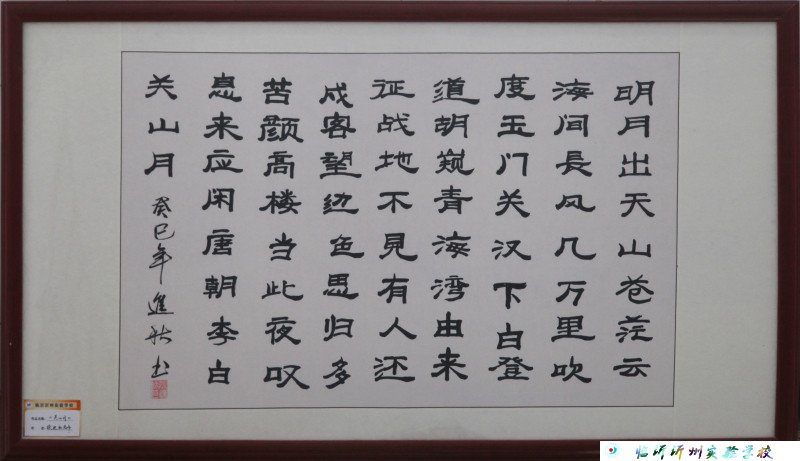 明月出天山苍茫云
海间長风几万里吹
度玉门关汉下白登
道胡窥青海湾由来
征战地不見有人还
戍客望边色思归多
苦颜高楼当此夜叹
息来应闲唐朝李白
关山月
癸巳年進秋书
临沂沂州实验学校